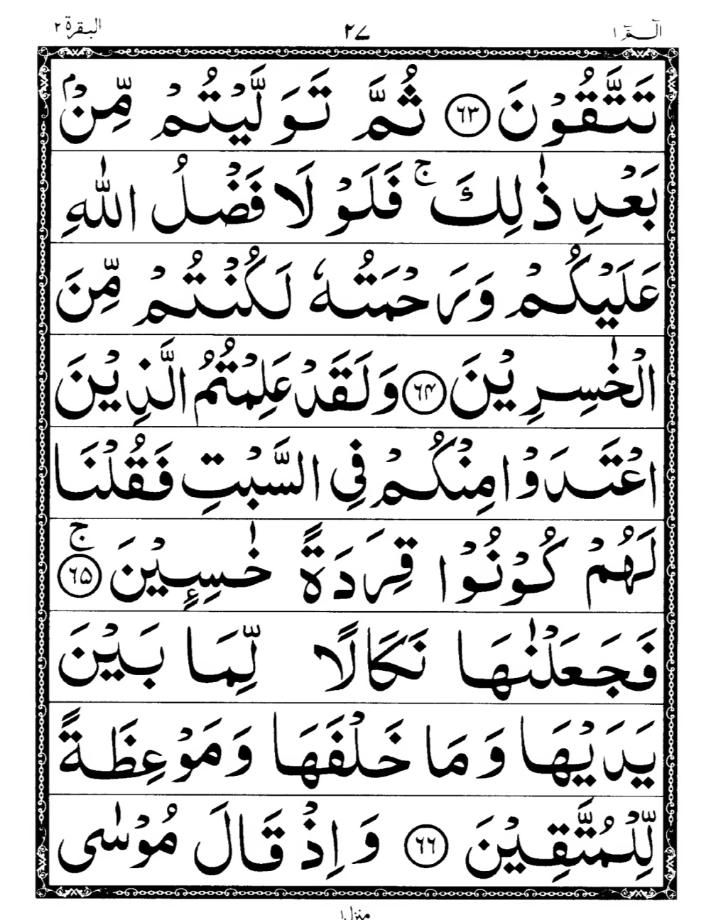 الٓـمّٓ ١ ٢٧ البقرة ٢
تَتَّقُوْنَ ﴿٦٣﴾ ثُمَّ تَوَلَّيْتُمْ مِّنْۢ
بَعْدِ ذٰلِكَ ۚ فَلَوْ لَا فَضْلُ اللّٰهِ
عَلَيْكُمْ وَرَحْمَتُهٗ لَكُنْتُمْ مِّنَ
الْخٰسِرِيْنَ ﴿٦٤﴾ وَلَقَدْ عَلِمْتُمُ الَّذِيْنَ
اعْتَدَوْا مِنْكُمْ فِى السَّبْتِ فَقُلْنَا
لَهُمْ كُوْنُوْا قِرَدَةً خٰسِـِٕيْنَ ۚ ﴿٦٥﴾
فَجَعَلْنٰهَا نَكَالًا لِّمَا بَيْنَ
يَدَيْهَا وَمَا خَلْفَهَا وَمَوْعِظَةً
لِّلْمُتَّقِيْنَ ﴿٦٦﴾ وَاِذْ قَالَ مُوْسٰى
منزل ١